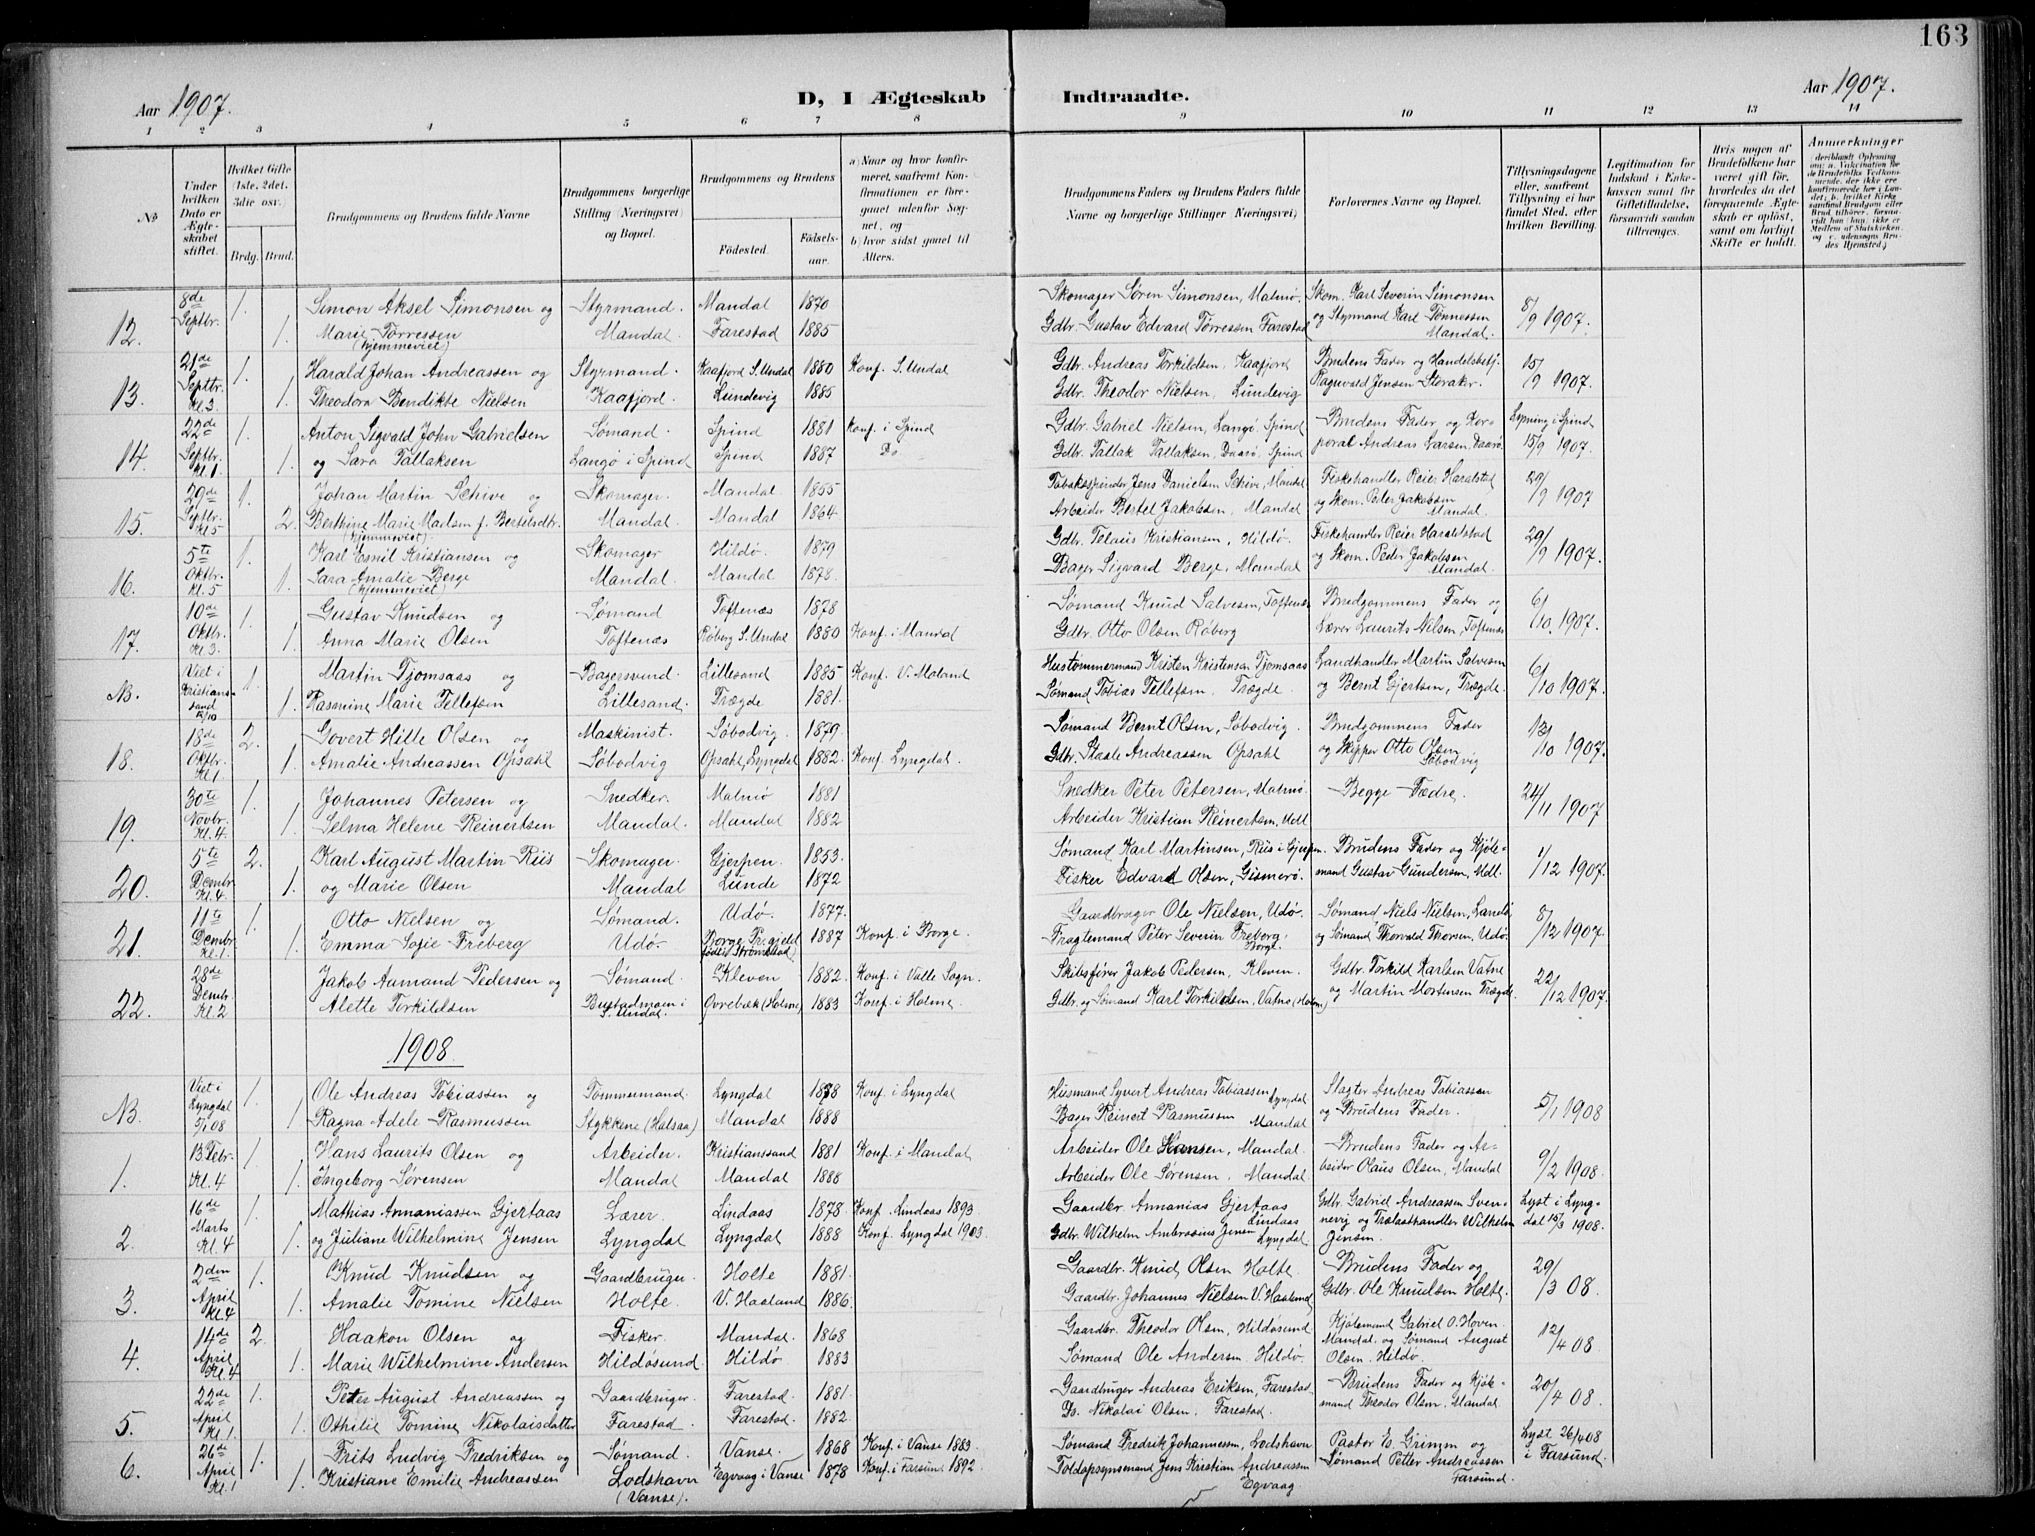 163
Aar 1907.
D, I Ægteskab Indtraadte.
Aar 1907.
1 2 3 4 5 6 7 8 9 10 11 12 13 14
No
Under hvilken Dato er Ægteskabet stiftet.
Hvilket Gifte (1ste, 2det, 3die osv.)
Brdg. Brud.
Brudgommens og Brudens fulde Navne
Brudgommens borgerlige Stilling (Næringsvei) og Bopæl.
Brudgommens og Brudens
Fødested. Fødselsaar.
a) Naar og hvor konfirmeret, saafremt Konfirmationen er foregaaet udenfor Sognet, og
b) hvor sidst gaaet til Alters.
Brudgommens Faders og Brudens Faders fulde Navne og borgerlige Stillinger (Næringsvei)
Forlovernes Navne og Bopæl.
Tillysningsdagene eller, saafremt Tillysning ei har fundet Sted, efter hvilken Bevilling.
Legitimation for Indskud i Enkekassen samt for Giftetilladelse, forsaavidt saadan tiltrænges.
Hvis nogen af Brudefolkene har været gift før, hvorledes da det foregaaende Ægteskab er opløst, samt om lovligt Skifte er holdt.
Anmærkninger
12. 8de Septbr. 1. Simon Aksel Simonsen og Styrmand. Mandal 1870 Skomager Søren Simonsen, Malmø. Skom. Karl Severin Simonsen 8/9 1907.
1. Marie Tørressen (hjemmeviet) Mandal. Farestad 1885 Gdbr. Gustav Edvard Tørressen Farestad og Styrmand Karl Tønnessen Mandal.
13. 21de Septbr. Kl. 3. 1. Harald Johan Andreassen og Styrmand. Kaafjord S. Undal 1880 Konf. S. Undal Gdbr. Andreas Torkildsen, Kaafjord Brudens Fader og Handelsbetj. 15/9 1907.
1. Theodora Bendikte Nielsen Kaafjord. Lundevig 1885 Gdbr. Theodor Nielsen, Lundevig Ragnvald Jensen Storaker.
14. 22de Septbr. Kl. 1. 1. Anton Sigvald John Gabrielsen Sømand. Spind 1881 Konf. i Spind Gdbr. Gabriel Nielsen, Langø, Spind Brudens Fader og Kor- Lysning i Spind
1. og Sara Tallaksen Langø i Spind Spind 1887 Do Gdbr. Tallak Tallaksen, Daarø, Spind poral Andreas Larsen, Daarø. 15/9 1907.
15. 29de Septbr. Kl. 5 1. Johan Martin Schive og Skomager. Mandal 1855 Tobaksspinder Jens Danielsen Schive, Mandal Fiskehandler Reier Haralstad 29/9 1907
2. Berthine Marie Madsen f. Bertelsdtr. (hjemmeviet) Mandal. Mandal 1864 Arbeider Bertel Jakobsen, Mandal og Skom. Peder Jakobsen Mandal.
16. 5te Oktbr. Kl. 5 1. Karl Emil Kristiansen og Skomager Hildø. 1879 Gdbr. Tolaus Kristiansen, Hildø. Fiskehandler Reier Haraldstad 29/9 1907.
1. Sara Amalie Berge (hjemmeviet) Mandal. Mandal 1878. Bager Sigvard Berge, Mandal og Skom. Peder Jakobsen Mandal.
17. 10de Oktbr. Kl. 3. 1. Gustav Knudsen og Sømand Toftenæs 1878 Sømand Knud Salvesen, Toftenæs Brudgommens Fader og 6/10. 1907.
1. Anna Marie Olsen Toftenæs Røberg S. Undal 1880 Konf. i Mandal Gdbr. Otto Olsen Røberg Lærer Laurits Nilsen, Toftenæs
NB. Viet i Kristianssand 15/10 1. Martin Tjomsaas og Bagersvend. Lillesand 1885 Konf. V. Moland Hustømmermand Kristen Kristensen Tjomsaas Landhandler Martin Salvesen 6/10 1907.
1. Rasmine Marie Tellefsen Lillesand. Trægde 1881. Sømand Tobias Tellefsen. Trægde. og Bernt Gjertsen, Trægde.
18. 18de Oktbr. Kl. 1 2. Govert Hille Olsen og Maskinist. Søbodvig. 1879. Sømand Bernt Olsen, Søbodvig. Brudgommens Fader 13/10 1907.
1. Amalie Andreassen Opsahl Søbodvig Opsahl, Lyngdal 1882. Konf. Lyngdal. Gdbr. Staale Andreassen Opsahl og Skipper Otto Olsen Søbodvig
19. 30te Novbr. Kl. 4. 1. Johannes Petersen og Snedker. Malmø 1881 Snedker Peter Petersen, Malmø. Begge Fædre. 24/11 1907
1. Selma Helene Reinertsen Mandal. Mandal 1882 Arbeider Kristian Reinertsen, Mdl.
20. 5te Dembr. Kl. 4. 2. Karl August Martin Riis Skomager. Gjerpen. 1853. Sømand Karl Martinsen, Riis i Gjerpen. Brudens Fader og Kjøle- 1/12 1907.
1. og Marie Olsen Mandal Lunde 1872 Fisker Edvard Olsen, Gismerø. mand Gustav Gundersen, Mdl.
21. 11te Dembr. Kl. 1. 1. Otto Nielsen og Sømand. Udø. 1877. Gaardbruger Ole Nielsen, Udø. Sømand Niels Nielsen, Landø 8/12 1907.
1. Emma Sofie Freberg Udø. Borge Pr.gjeld (født i Strømstad) 1887 Konf. i Borge. Fragtemand Peter Severin Freberg, Borge. og Sømand Thorvald Thorsen, Udø.
22. 28de Dembr. Kl. 2 Jakob Aamand Pedersen og Sømand. Kleven 1882. Konf. i Valle Sogn. Skibsfører Jakob Pedersen, Kleven. Gdbr. Torkild Karlsen Vatne 22/12 1907.
Alette Torkildsen Bustadmoen i S. Undal. Øvrebæk (Holme) 1883 Konf. i Holme. Gdbr. og Sømand Karl Torkildsen, Vatne (Holme) og Martin Mortensen Trægde.
1908
NB. Viet i Lyngdal 5/1 08 1. Ole Andreas Tobiassen og Tømmermand. Lyngdal 1878 Konf. i Lyngdal Husmand Syvert Andreas Tobiassen, Lyngdal Slagter Andreas Tobiassen 5/1 1908
1 Ragna Adele Rasmussen Stykkene (Halsaa) Mandal 1888 Bager Reinert Rasmussen Mandal og Brudens Fader.
1. 13 Febr. Kl. 4 1. Hans Laurits Olsen og Arbeider. Kristianssand 1881 Konf. i Mandal Arbeider Ole Hansen, Mandal. Brudens Fader og Ar- 9/2 1908.
1. Ingeborg Sørensen Mandal Mandal 1888 Arbeider Ole Sørensen. Mandal beider Olaus Olsen, Mandal
2. 16de Marts Kl. 4 1. Mathias Annaniassen Gjertaas Lærer. Lindaas 1878. Konf. Lindaas 1893. Gaardbr. Annanias Gjertaas Lindaas Gdbr. Gabriel Andreassen Sven- Lyst i Lyng-
1. og Juliane Wilhelmine Jensen Lyngdal Lyngdal 1888 Konf. Lyngdal 1903. Gdbr. Wilhelm Ambrosius Jensen Lyngdal nevig og Trælasthandler Wilhelm Jensen. dal 15/3 1908.
3. 2den April Kl. 4 1. Knud Knudsen og Gaardbruger Holte 1881. Gaardbr. Knud Olsen Holte. Brudens Fader og 29/3 08.
1. Amalie Tomine Nielsen Holte. V. Haaland 1886. Gaardbr. Johannes Nielsen V. Haaland Gdbr. Ole Knudsen Holte.
4. 14de April Kl. 4 2. Haakon Olsen og Fisker Mandal. 1868 Gaardbr. Theodor Olsen, Hildøsund Kjølemand Gabriel O. Hoven. 12/4 08.
1. Marie Wilhelmine Andersen Hildøsund. Hildø 1883 Sømand Ole Andersen. Hildø. Mandal. og Sømand August Olsen. Hildø
5. 22de April Kl. 1. 1. Peter August Andreassen og Gaardbruger. Farestad. 1881. Gaardbruger Andreas Eriksen, Farestad Brudens Fader og Kjøle- 20/4 08.
1. Othilie Tomine Nikolaisdatter Farestad. Farestad. 1882. Do. Nikolai Olsen. Farestad. mand Theodor Olsen, Mandal.
6. 26de April Kl. 1 1. Frits Ludvig Fredriksen og Sømand. Vanse. 1868 Konf. i Vanse 1883. Sømand Fredrik Johannessen, Lodshavn Pastor E. Grimm og Lyst 26/4 08
1. Kristiane Emilie Andreassen Lodshavn (Vanse). Egvaag i Vanse 1878 Konf. i Farsund 1892. Toldopsynsmand Jens Kristian Andreassen Egvaag Sømand Petter Andreassen Farsund. i Farsund.